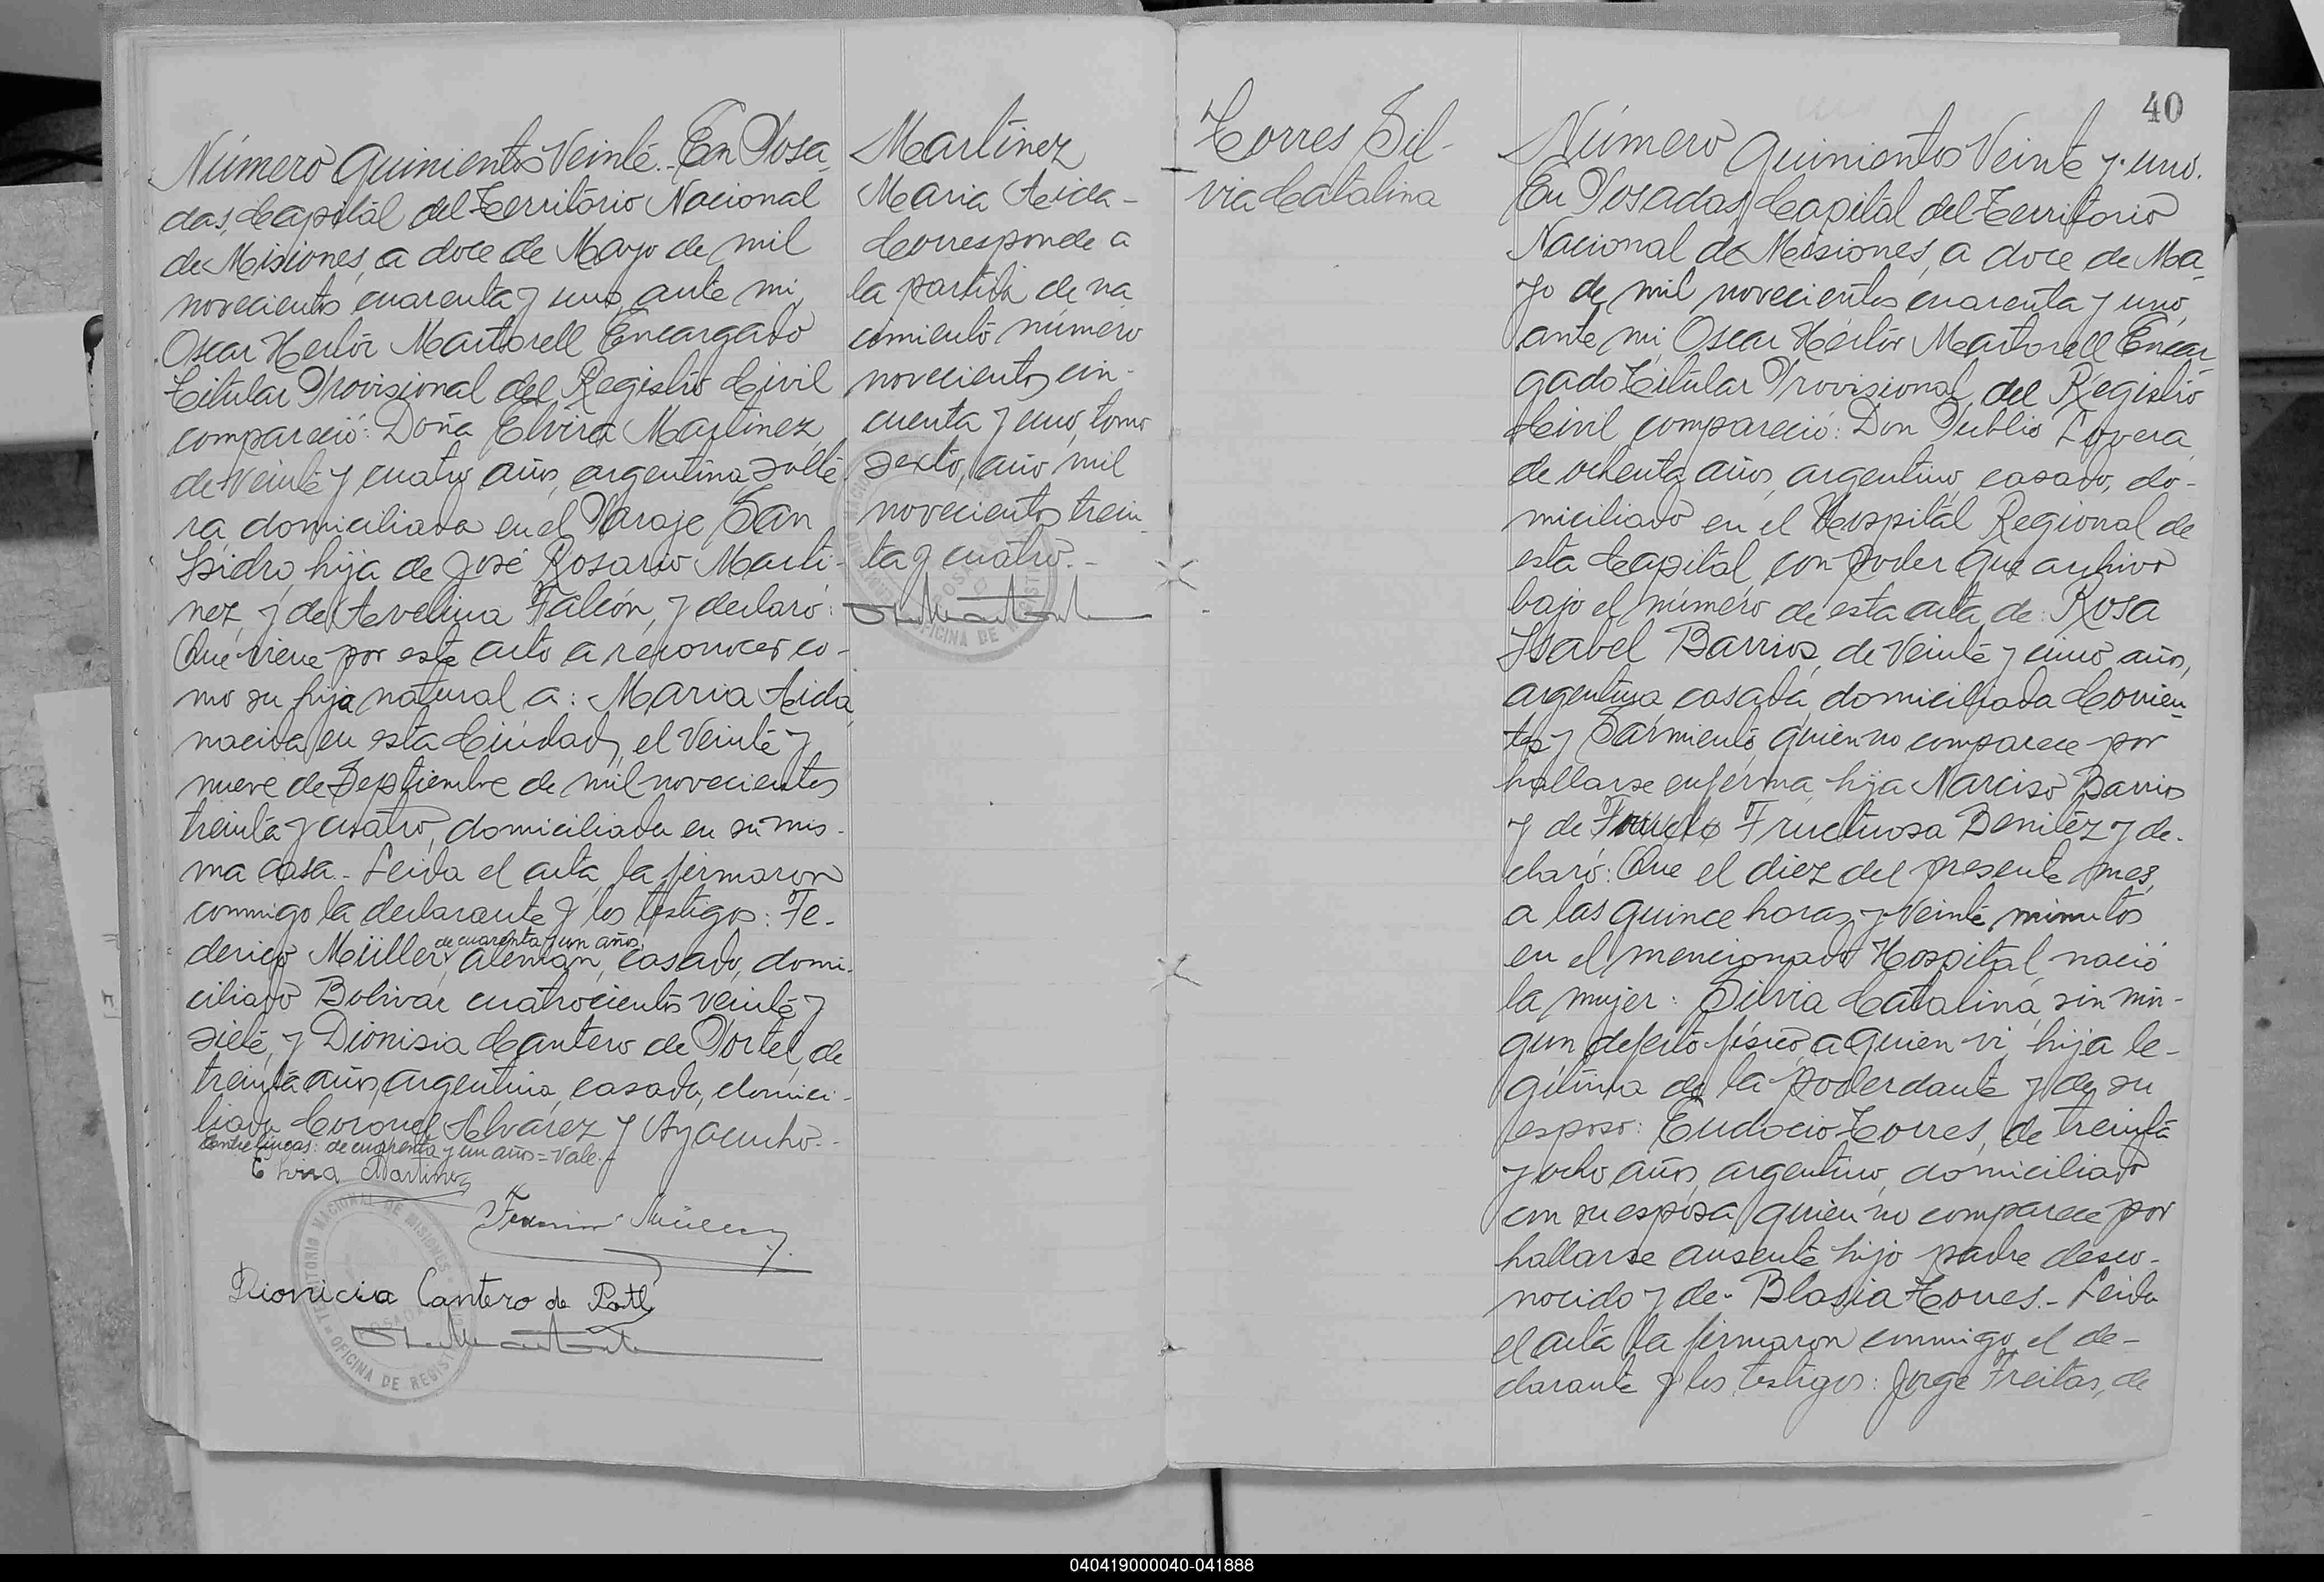 Número Quinientos Veinte. En Posa-
das, Capital del Territorio Nacional
de Misiones, a doce de Mayo de mil
novecientos cuarenta y uno, ante mi,
Oscar Hector Martorell Encargado
Titular Provisional del Registro Civil
compareció: Doña Elvira Martinez,
de Veinte y cuatro años, argentina, solte-
ra domiciliada en el Paraje San
Isidro, hija de José Rosario Marti-
nez, y de Avelina Falcón, y declaró:
Que viene por este acto a reconocer co-
mo su hija natural a: Maria Aida,
nacida en esta Ciudad, el Veinte y
nueve de Septiembre de mil novecientos
treinta y cuatro, domiciliada en su mis-
ma casa. Leida el acta, la firmaron
conmigo la declarante y los testigos: Fe-
de cuarenta y un años,
derico Müller, alemán, casado, domi-
ciliado Bolivar cuatrocientos veinte y
siete, y Dionisia Cantero de Portel, de
treinta años, argentina, casada, domici-
liada Coronel Alvarez y Ayacucho.-
Entre lineas: de cuarenta y un años = Vale.-
Elvira Martinez
Müller
Dionicia Cantero de
TERRITORIO NACIONAL DE MISIONES
OFICINA DE REGISTRO
Martinez
Maria Aida-
Corresponde a
la partida de na
cimiento número
novecientos cin-
cuenta y uno, tomo
sexto, año mil
novecientos trein
ta y cuatro.-
OFICINA DE
Torres Sil-
via Catalina
40
Número Quinientos Veinte y uno.
En Posadas, Capital del Territorio
Nacional de Misiones, a doce de Ma-
yo de mil novecientos cuarenta y uno,
ante mi, Oscar Hector Martorell Encar-
gado Titular Provisional, del Registro
Civil, compareció: Don Publio Lovera,
de ochenta años, argentino, casado, do-
miciliado en el Hospital Regional de
esta Capital, con poder que archivo
bajo el número de esta acta, de: Rosa
Isabel Barrios, de Veinte y cinco años,
argentina casada, domiciliada Corrien-
tes y Sarmiento, quien no comparece por
hallarse enferma, hija Narciso Barrios
y de Fructuosa Benitez y de-
claró: Que el diez del presente mes,
a las quince horas y Veinte minutos
en el mencionado Hospital, nació
la mujer: Silvia Catalina, sin nin-
gun defecto fisico, a quien vi, hija le-
gitima de la poderdante y de su
esposo: Eudocio Torres, de treinta
y ocho años, argentino, domiciliado
con su esposa, quien no comparece por
hallarse ausente hijo padre desco-
nocido y de. Blasia Torres.- Leida
el acta la firmaron conmigo, el de-
clarante y los testigos: Jorge Freitas, de
040419000040-041888